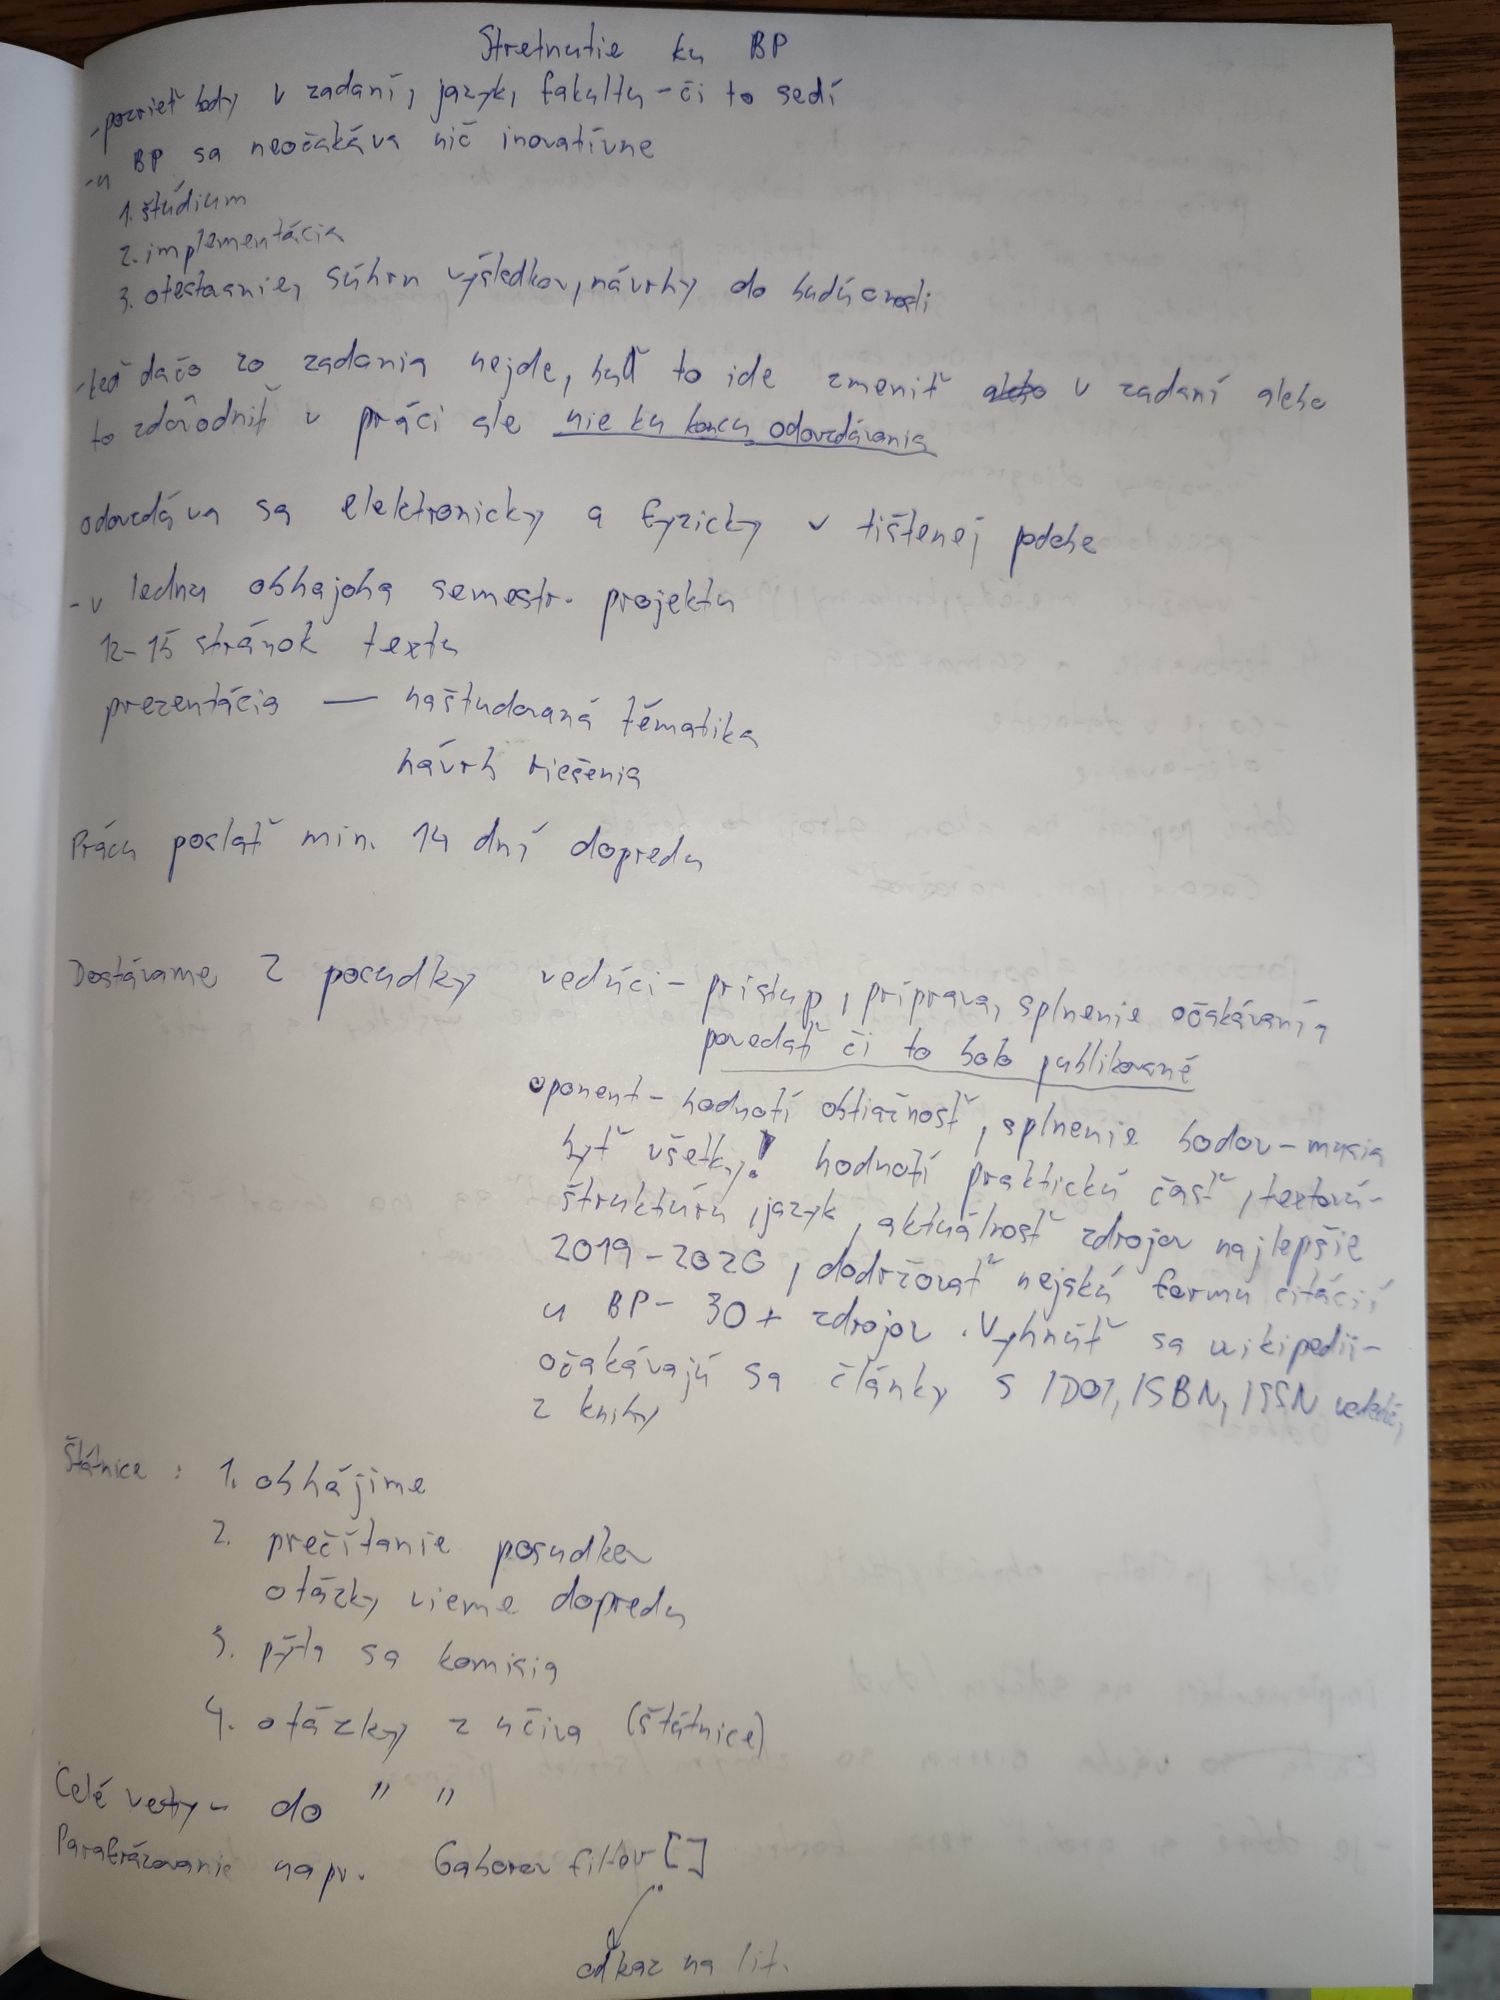 Stretnutie ku BP
-pozrieť body v zadaní, jazyk, fakultu - či to sedí
-u BP sa neočakáva nič inovatívne
1. štúdium
2. implementácia
3. otestovanie, súhrn výsledkov, návrhy do budúcnosti
-keď dačo zo zadania nejde, buď to ide zmeniť v zadaní alebo
to zdôvodniť v práci ale nie ku koncu odovzdávania
odovzdáva sa elektronicky a fyzicky v tištenej podobe
- v lednu obhajoba semestr. projektu
12-15 stránok textu
prezentácia — naštudovaná tématika
návrh riešenia
Prácu poslať min. 14 dní dopredu
Dostávame 2 posudky vedúci - prístup, príprava, splnenie očakávania
povedať či to bolo publikované
oponent - hodnotí obtiažnosť, splnenie bodov - musia
byť všetky! hodnotí praktickú časť, textovú -
štruktúru, jazyk, aktuálnosť zdrojov najlepšie
2019-2020, dodržovať nejakú formu citácií
u BP - 30+ zdrojov. Vyhnúť sa wikipedii -
očakávajú sa články s DOI, ISBN, ISSN
z knihy
Štátnice: 1. obhájime
2. prečítanie posudkov
otázky vieme dopredu
3. pýta sa komisia
4. otázky z učiva (štátnice)
Celé vety - do " "
Parafrázovanie napr. Gaborov filter []
odkaz na lit.